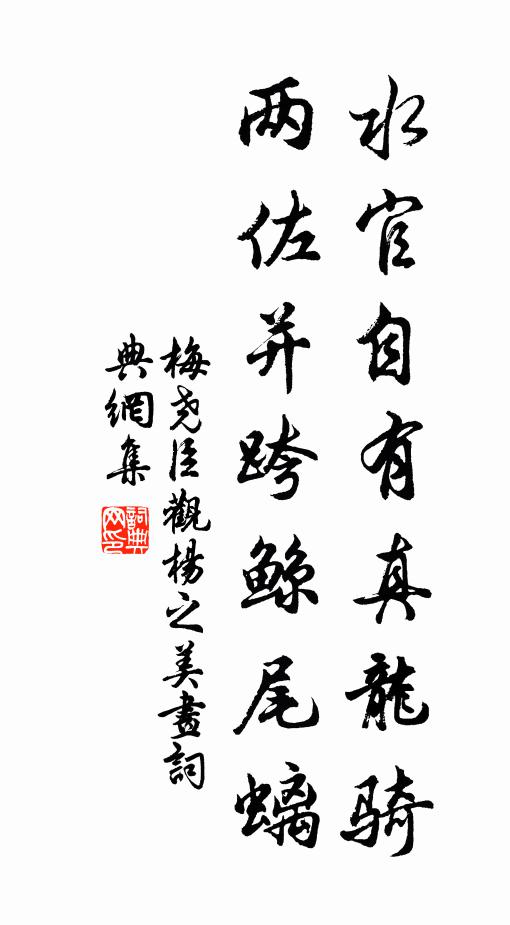 水官自有真龍骑
两佐并跨鲸尾螭
梅尧臣觀楊之美畫詞
典網集
詞典网印